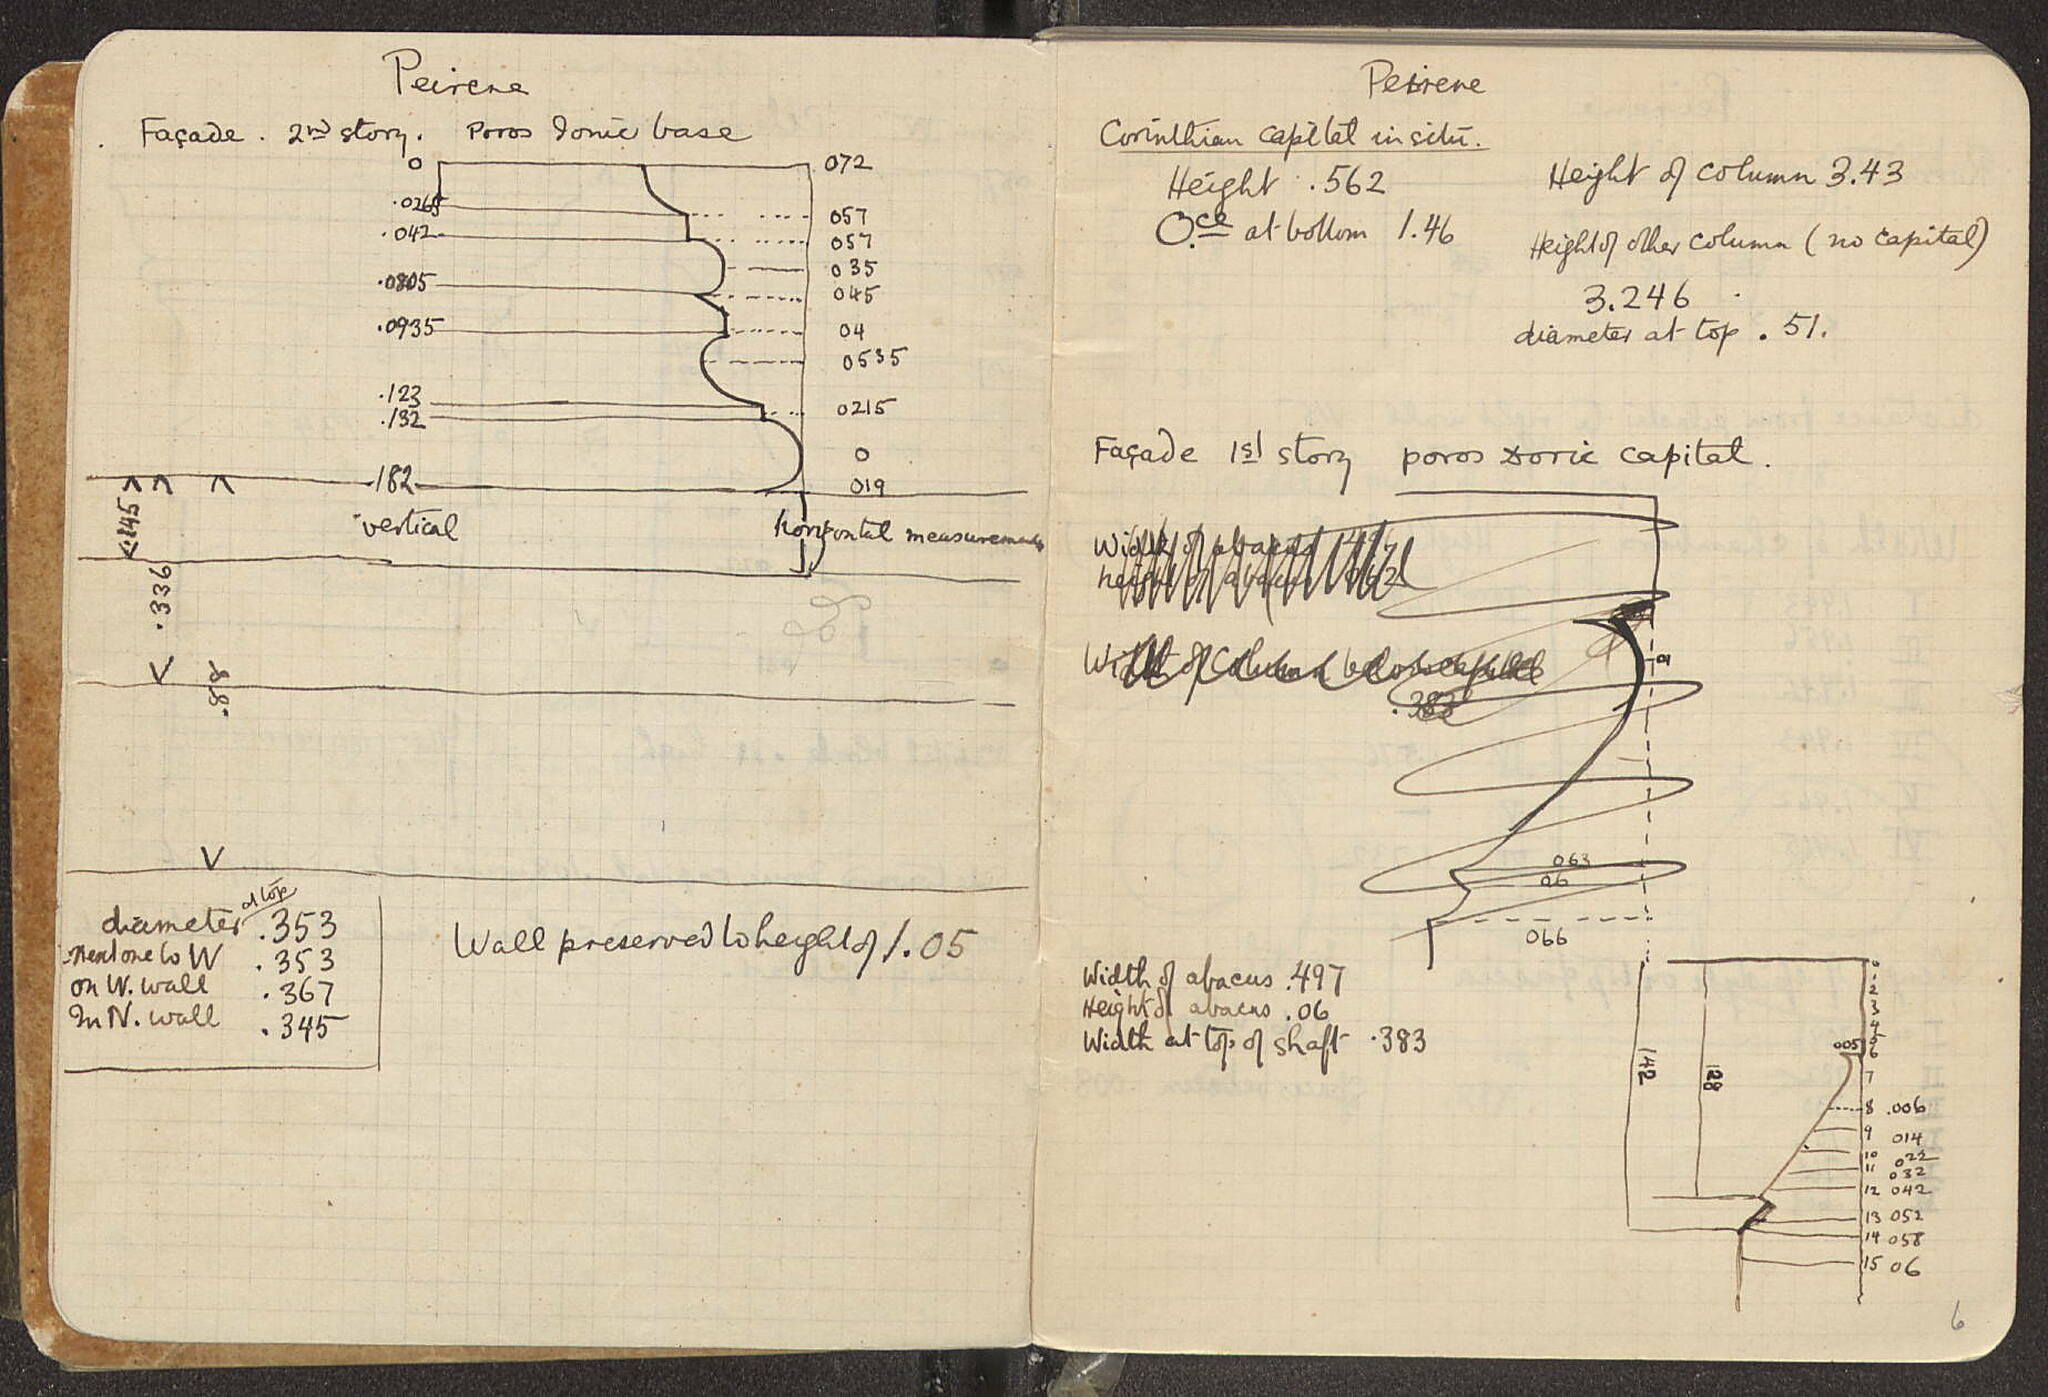 Peirene
Façade. 2nd story. Poros Ionic base
0 072
.0265 057
.042 057
035
.0805 045
.0935 04
0535
.123 0215
.132
0
.182 019
vertical horizontal measurements
.145
.336
.88
at top
diameter .353
next one to W .353
on W. wall .367
In N. wall .345
Wall preserved to height of 1.05
Peirene
Corinthian capital in situ.
Height .562
Oce at bottom 1.46
Height of column 3.43
Height of other column (no capital)
3.246
diameter at top .51.
Façade 1st story poros Doric capital.
Width of abacus
height of abacus
Width of column below capital
.383
01
063
06
066
Width of abacus .497
Height of abacus .06
Width at top of shaft .383
142
128
0
1
2
3
4
5
005 6
7
8 .006
9 014
10 022
11 032
12 042
13 052
14 058
15 06
6